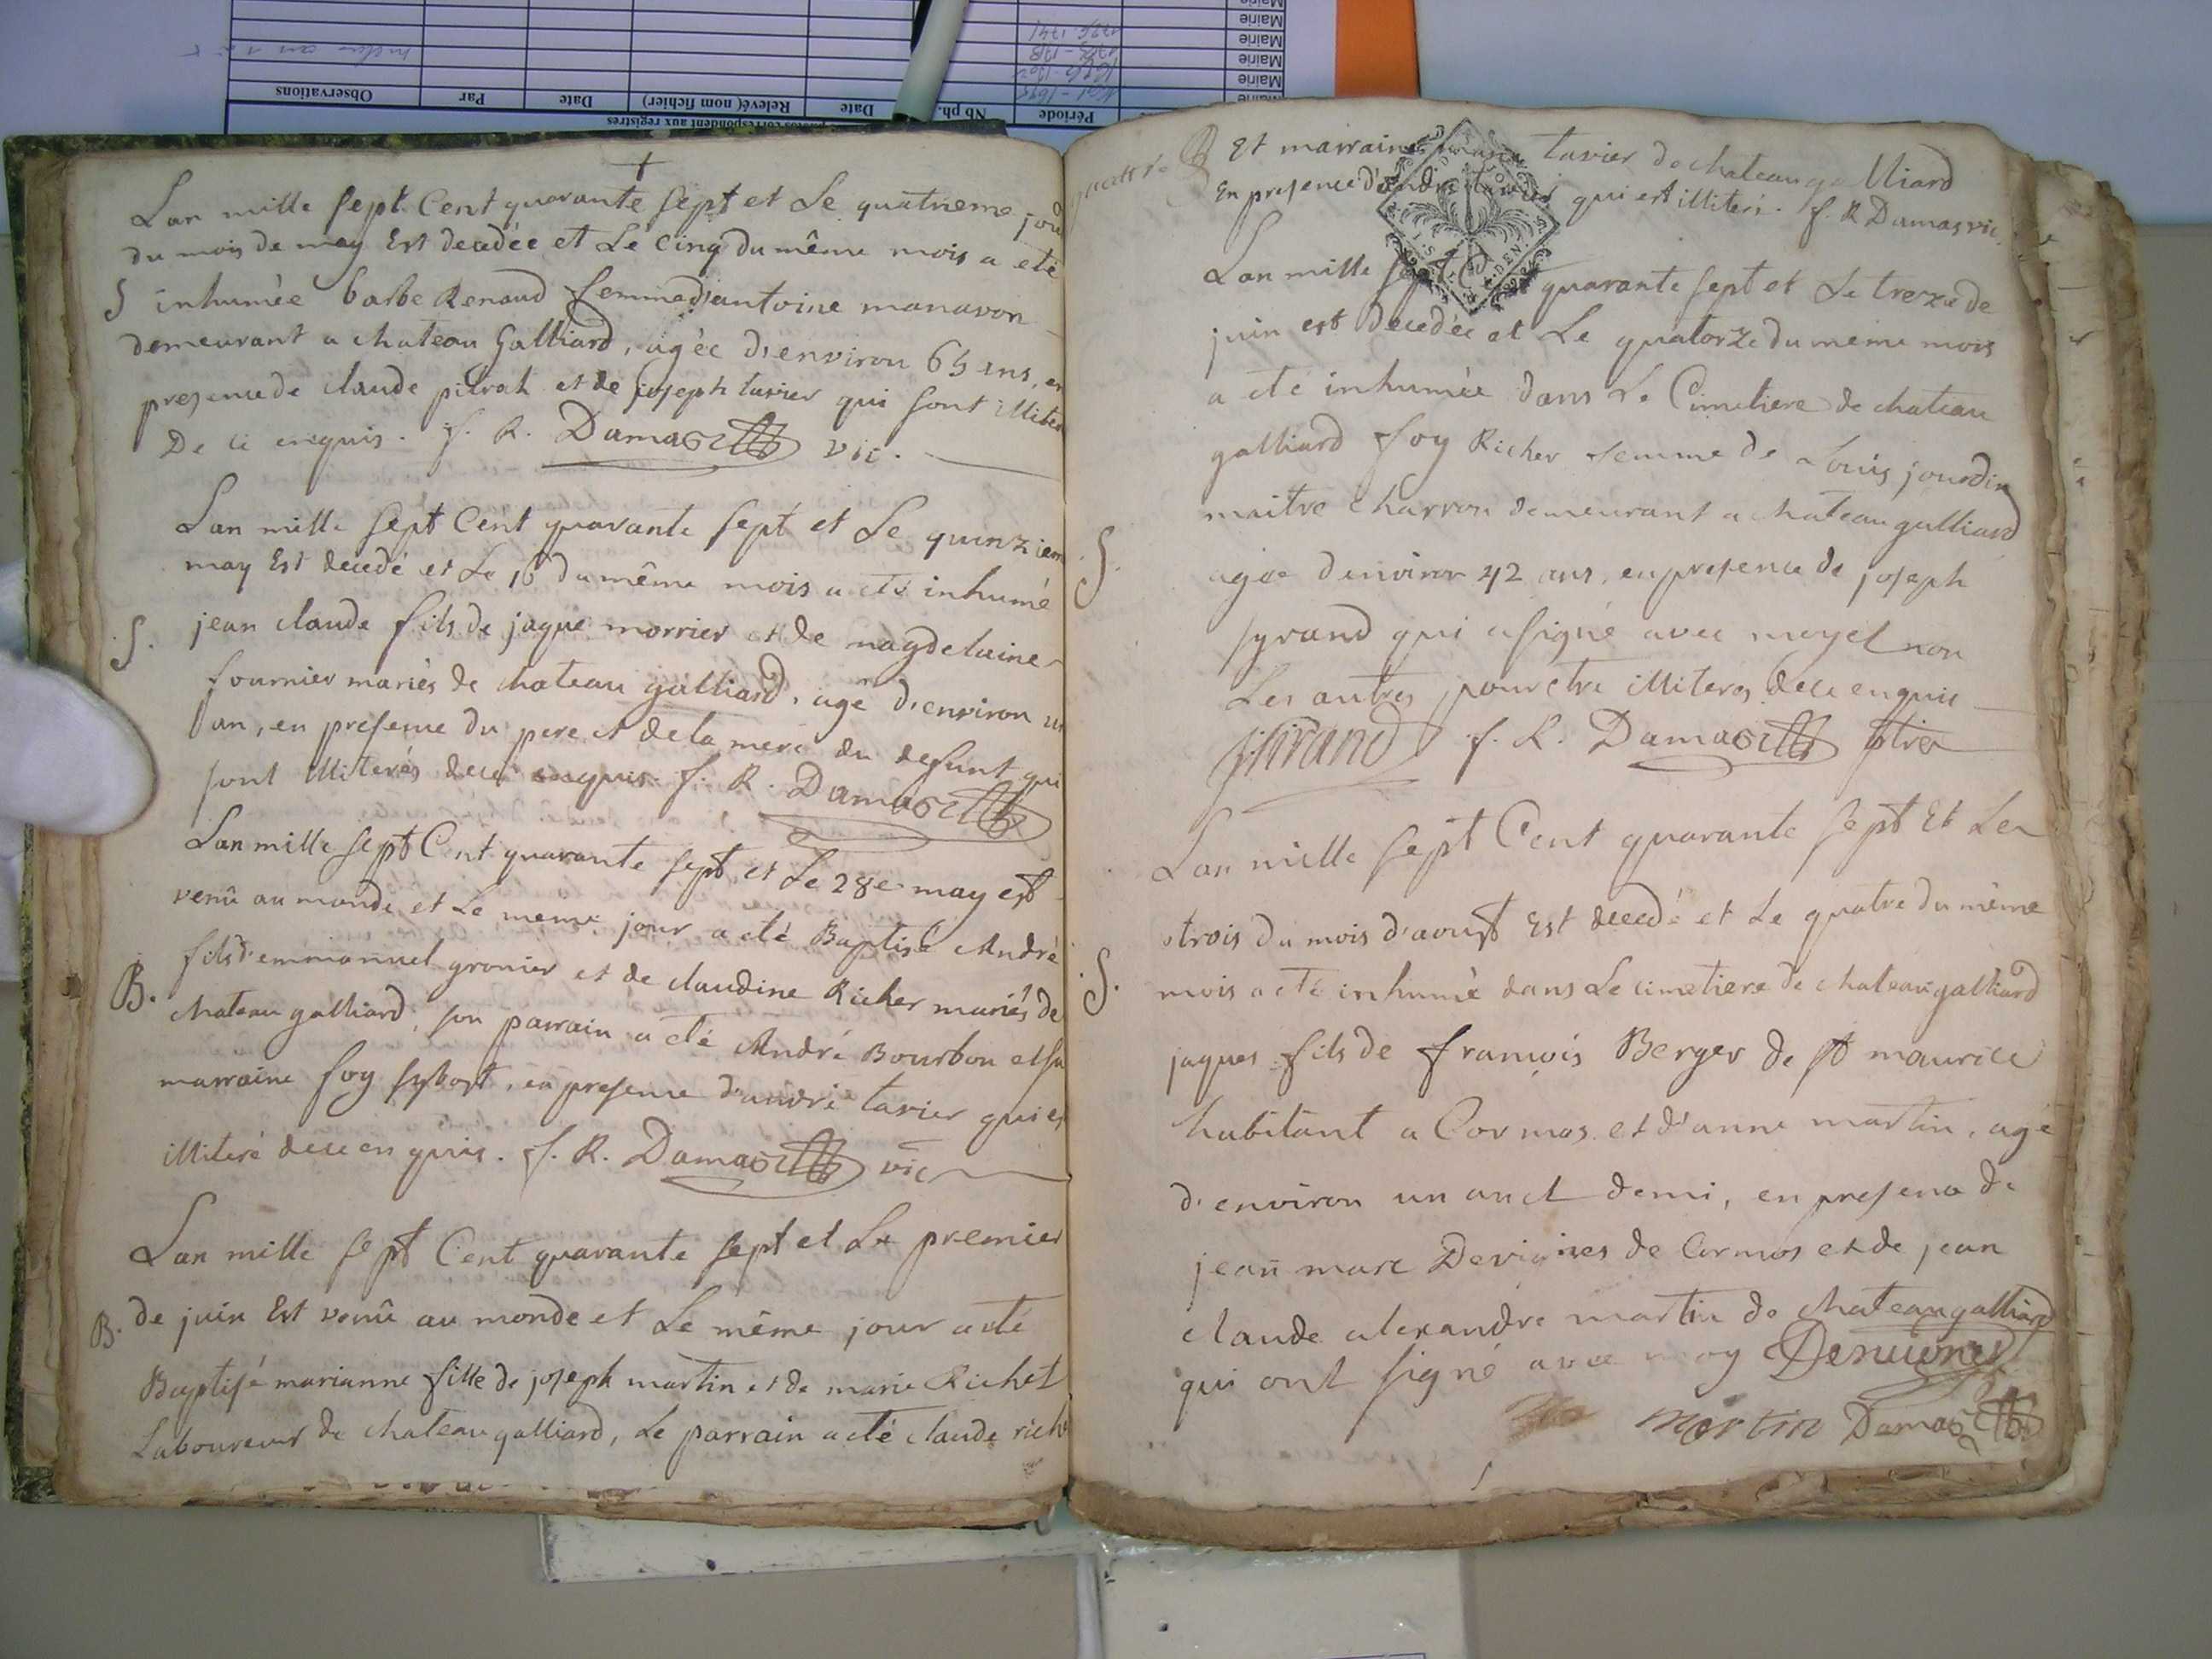 Mairie
Mairie
Mairie
Mairie
Observations
Par
Date
Relevé( nom fichier)
Date
Nb ph.
Période
correspondent aux registres
Lan mille sept Cent quarante sept et Le quatrieme jou
du mois de may Est decedée et Le cinq du même mois a eté
S inhumée barbe Renaud femme d'antoine manavon
demeurant a chateau Galliard, agée d'environ 65 ans, en
presence de claude pitrah et de joseph tavier qui sont illiter
De ce enquis. f. R. Damas vic.
Lan mille sept Cent quarante sept et Le quinziem
may Est decedé et Le 16 du même mois a eté inhumé
S. jean claude fils de jaque morrier et de magdelaine
fournier mariés de chateau galliard, agé d'environ un
an, en presence du pere et de la mere du defunt qui
sont illiterés dece enquis. f. R. Damas
Lan mille sept Cent quarante sept et Le 28e may est
venû au monde et Le meme jour a eté Baptisé André
fils d'emmanuel gronier et de claudine Richer mariés de
B. chateau galliard, son parrain a eté André Bourbon et sa
marraine foy sybost, en presence d'andré tavier qui es
illiteré dece enquis. f. R. Damas vic
Lan mille sept Cent quarante sept et Le premier
B. de juin Est venû au monde et Le même jour a eté
Baptisé marianne fille de joseph martin et de marie Richet
Laboureur de chateau galliard, Le parrain a eté claude rich
B Et marraine tavier de chateau galliard
En presence d'andré tavier qui est illiteré. f. R Damas vic.
Lan mille sept Cent quarante sept et Le treze de
juin est decedée et Le quatorze du meme mois
a eté inhumée dans Le Cimetiere de chateau
galliard foy Richer femme de Louis jourdin
maitre charron demeurant a chateau galliard
S. agée d'environ 42 ans, en presence de joseph
syrand qui a signé avec moy et non
Les autres pour etre illiteres dece enquis
f. R. Damas ptre
Lan mille sept Cent quarante sept Et Le
trois du mois d'aoust Est decedé et Le quatre du même
S. mois a eté inhumé dans Le cimetiere de chateau galliard
jaques fils de francois Berger de st maurice
habitant a Cormos et d'anne martin, agé
d'environ un an et demi, en presence de
jean marc Devignes de Cormos et de jean
claude alexandre martin de chateau galliard
qui ont signé avec moy
martin Damas